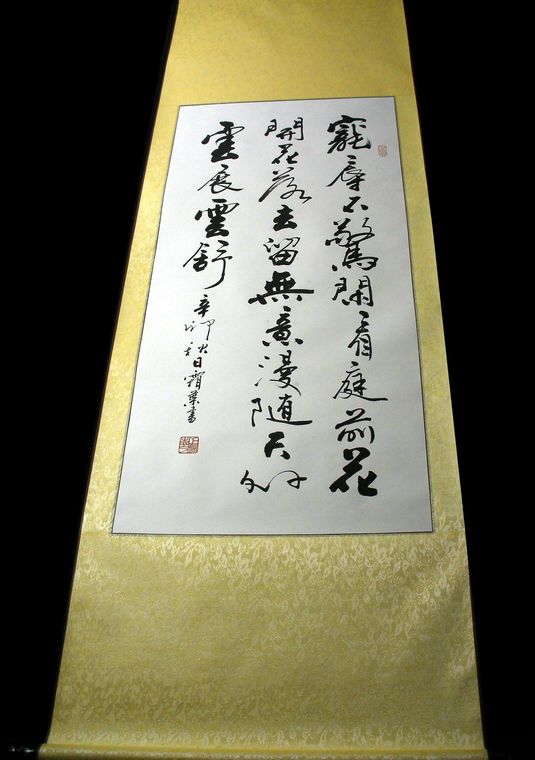 寵辱不驚閑看庭前花
開花落去留無意漫随天外
雲展雲舒辛卯秋日霜葉書